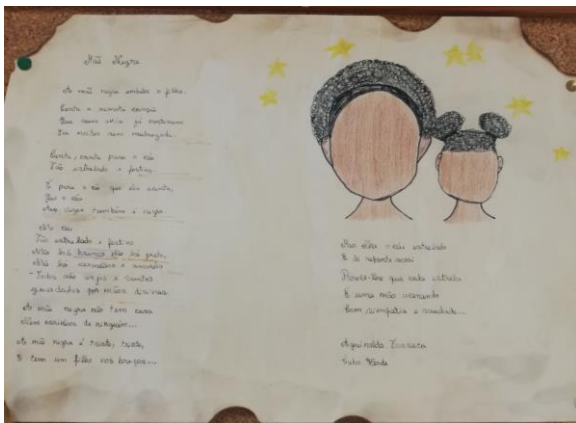 Mãe Negra
A mãe negra embala o filho.
Canta a remota canção
Que seus avós já cantavam
Em noites sem madrugada.
Canta, canta para o céu
Tão estrelado e festivo.
É para o céu que ela canta,
Que o céu
Às vezes também é negro.
No céu
Tão estrelado e festivo
Não há branco, não há preto,
Não há vermelho e amarelo
- Todos são anjos e santos
guardados por mãos divinas.
A mãe negra não tem casa
Nem carinhos de ninguém...
A mãe negra é triste, triste,
E tem um filho nos braços...
Mas olha o céu estrelado
E de repente sorri
Parece-lhe que cada estrela
É uma mão acenando
Com simpatia e saudade...
Aguinaldo Fonseca
Cabo Verde